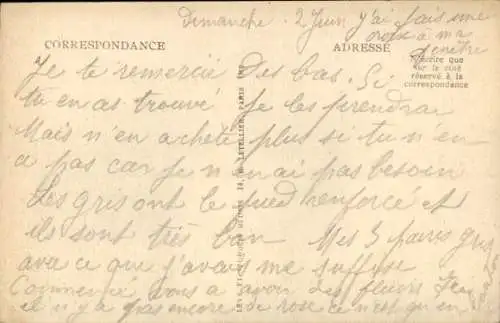 Dimanche 2 Juin j'ai fais une
rose à ma
fenêtre
CORRESPONDANCE
ADRESSE
N'écrire que
sur le côté
réservé à la
correspondance
Je te remercie Des bas. Si
tu en as trouvé Je les prendrai
Mais n'en achète plus si tu n'en
a pas car Je n'en ai pas besoin
Les gris ont le pied renforcé et
ils sont très bon Mes 3 paires gris
avec ce que j'avais me suffise
Commence vous a avoir des fleurs Ici
il n'y a pas encore de rose ce n'est qu'en
LETELLIER, PARIS